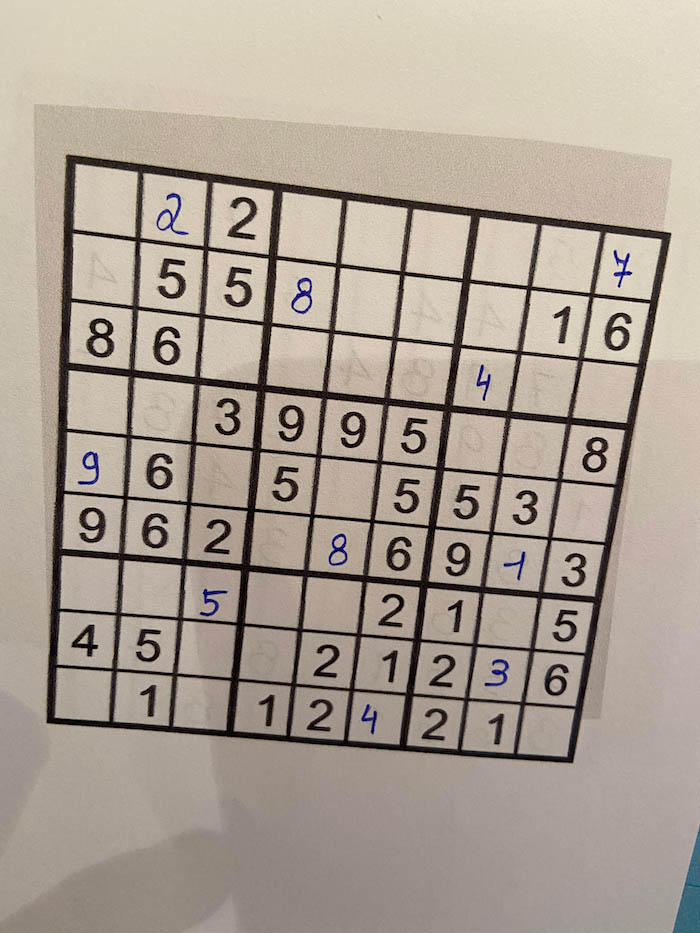 2 2 7
5 5 8 1 6
8 6 4
3 9 9 5 8
9 6 5 5 5 3
9 6 2 8 6 9 1 3
5 2 1 5
4 5 2 1 2 3 6
1 1 2 4 2 1